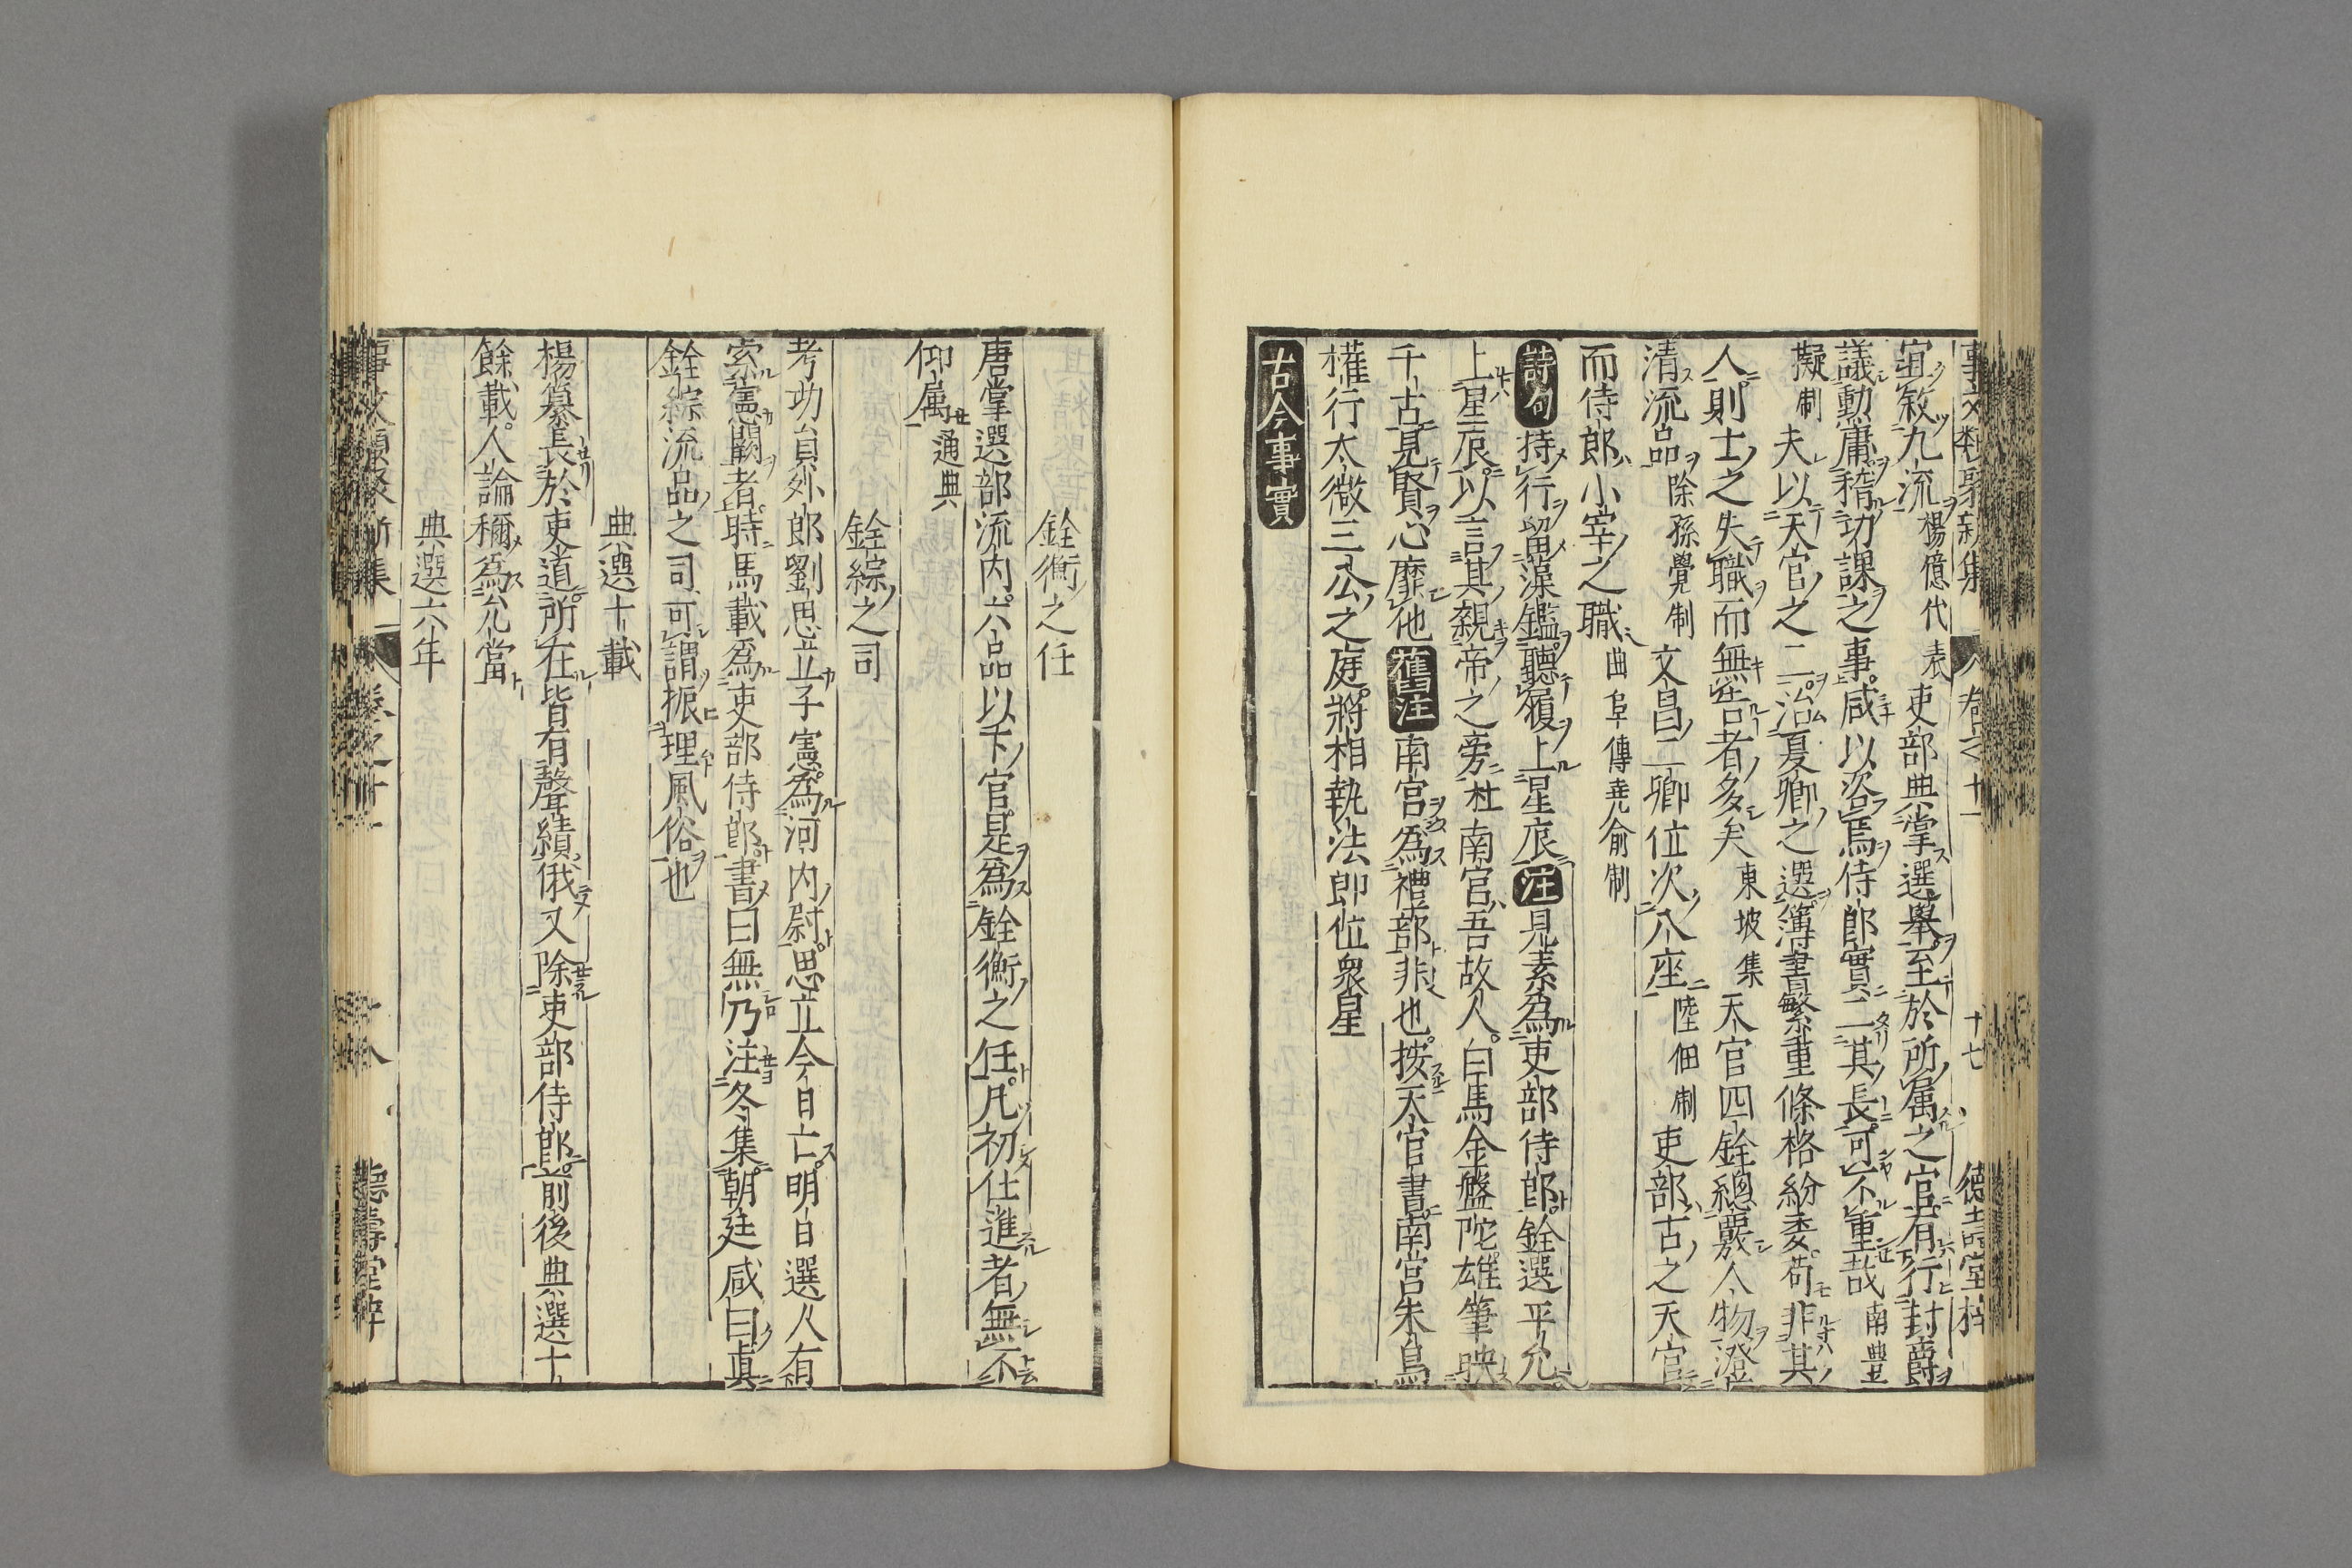 事文類聚新集 卷之十一 十七 德壽堂梓
宜敘九流楊億代表吏部典掌選舉至於所属之官有行封爵
議勳庸稽功課之事咸以咨焉侍郎實二其長可不重哉南豊
擬制夫以天官之二治夏卿之選簿書繁重條格紛委苟非其
人則士之失職而無告者多矣東坡集天官四銓總覈人物澄
清流品除孫覺制文昌二卿位次八座陸佃制吏部古之天官
而侍郎小宰之職曲阜傳堯俞制
詩句持行留藻鑑聽履上星辰注見素為吏部侍郎銓選平允
上星辰以言其親帝之旁杜南宮吾故人白馬金盤陀雄筆映
千古見賢心靡他舊注南宮為禮部非也按天官書南宮朱鳥
權行太微三公之庭將相執法郎位衆星
古今事實
銓衡之任
唐掌選部流內六品以下官是為銓衡之任凡初仕進者無不
仰属通典
銓綜之司
考功員外郎劉思立子憲為河內尉思立今日亡明日選人有
索憲闕者時馬載為吏部侍郎書曰無乃注冬集朝廷咸曰眞
銓綜流品之司可謂振理風俗也
典選十載
楊纂長於吏道所在皆有聲績俄又除吏部侍郎前後典選十
餘載人論稱為允當
典選六年
德壽堂梓